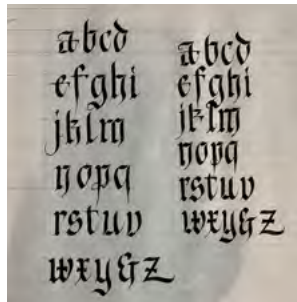 abcd
efghi
jklm
nopq
rstuv
wxy&z
abcd
efghi
jklm
nopq
rstuv
wxy&z